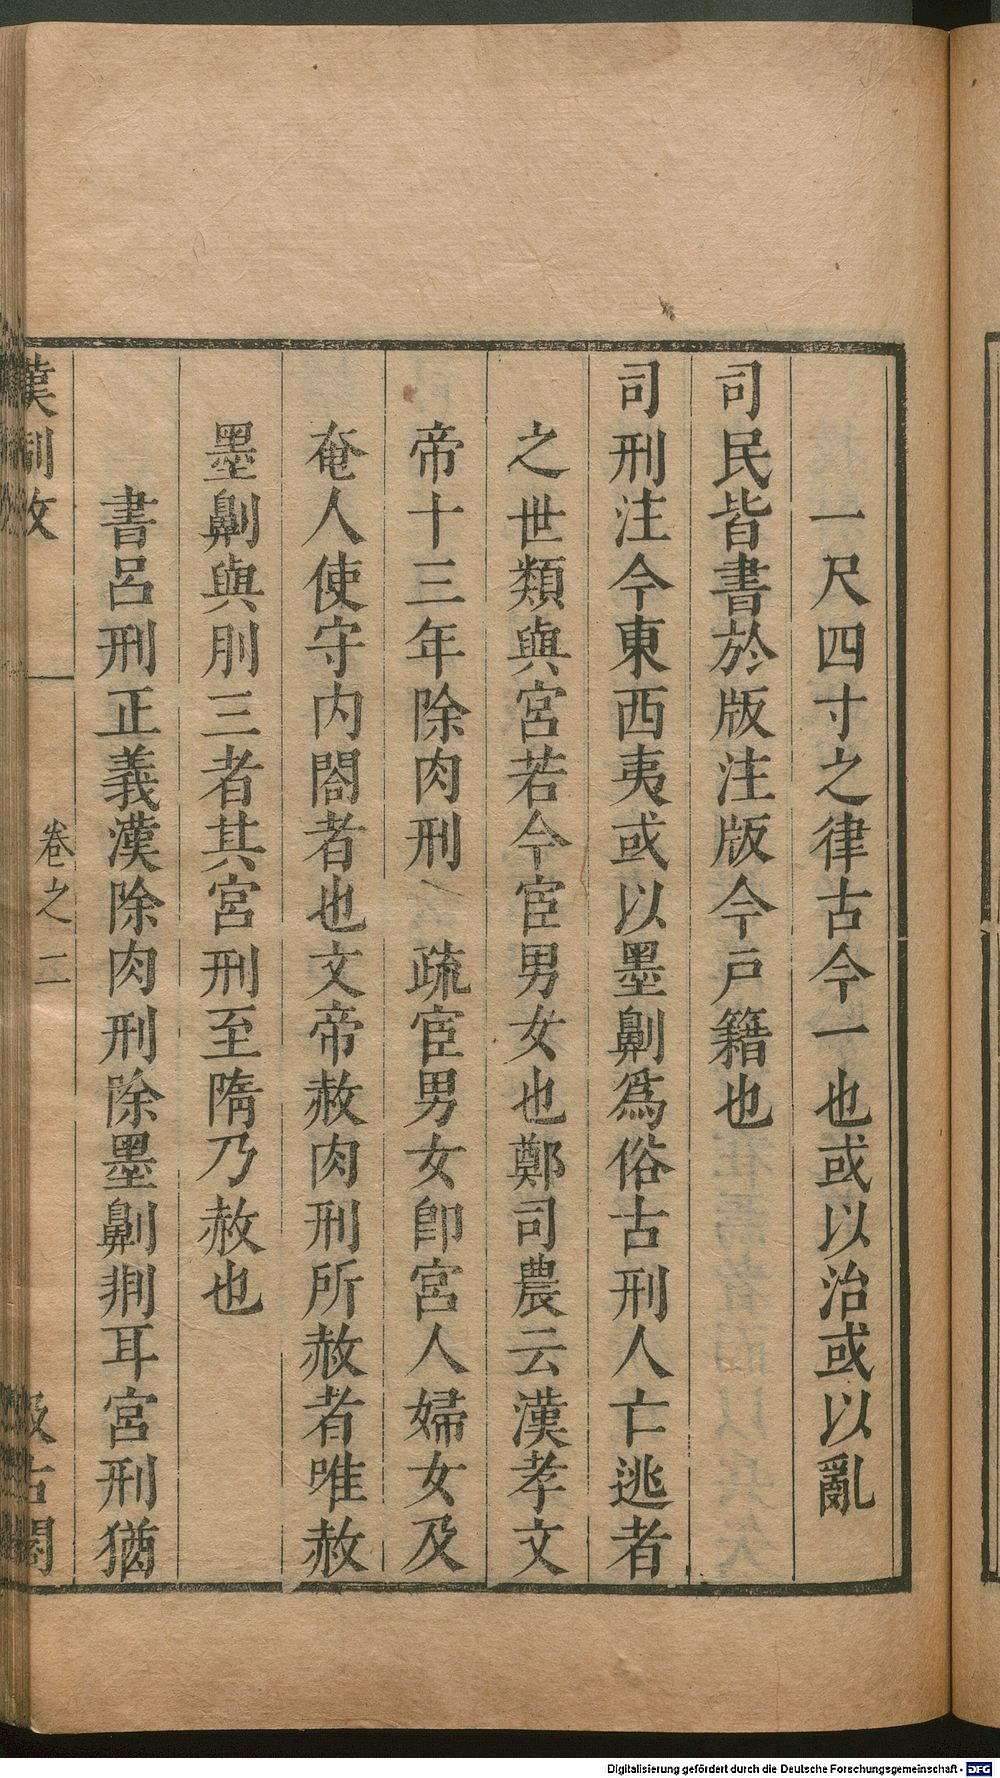 一尺四寸之律古今一也或以治或以亂
司民皆書於版注版今戸籍也
司刑注今東西夷或以墨劓爲俗古刑人亡逃者
之世類與宮若今宦男女也鄭司農云漢孝文
帝十三年除肉刑 疏宦男女卽宮人婦女及
奄人使守内閤者也文帝赦肉刑所赦者唯赦
墨劓與刖三者其宮刑至隋乃赦也
書呂刑正義漢除肉刑除墨劓剕耳宮刑猶
漢制攷 卷之二 汲古閣
Digitalisierung gefördert durch die Deutsche Forschungsgemeinschaft - DFG